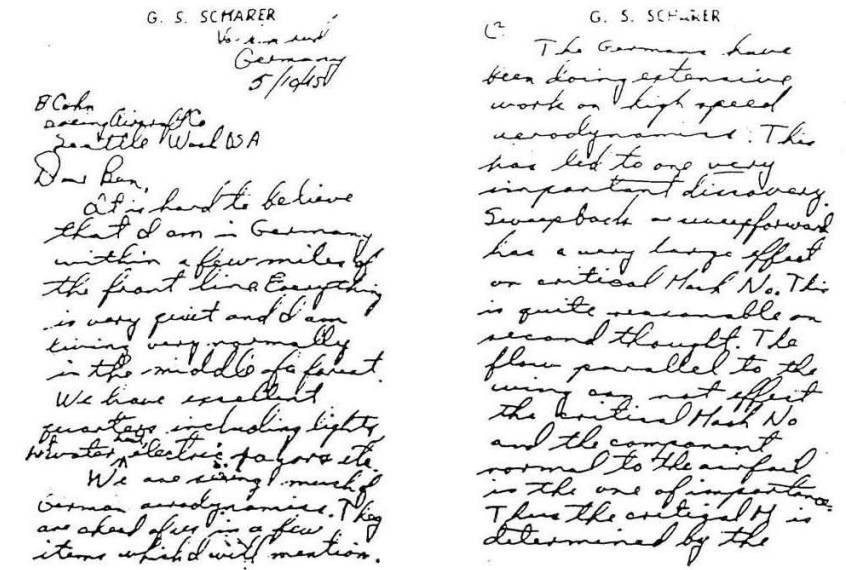 G. S. SCHAIRER
Germany
5/10/45
B Cohn
Boeing Aircraft Co
Seattle Wash USA
Dear Ben,
It is hard to believe
that I am in Germany
within a few miles of
the front line Everything
is very quiet and I am
living very normally
in the middle of a forest.
We have excellent
quarters including lights
hot water, heat, electric razors etc.
We are seeing much of
German aerodynamics. They
are ahead of us in a few
items which I will mention.
G. S. SCHAIRER
(2
The Germans have
been doing extensive
work on high speed
aerodynamics. This
has led to one very
important discovery.
Sweepback or sweepforward
has a very large effect
on critical Mach No. This
is quite reasonable on
second thought. The
flow parallel to the
wing can not effect
the critical Mach No
and the component
normal to the airfoil
is the one of importance.
Thus the critical M is
determined by the